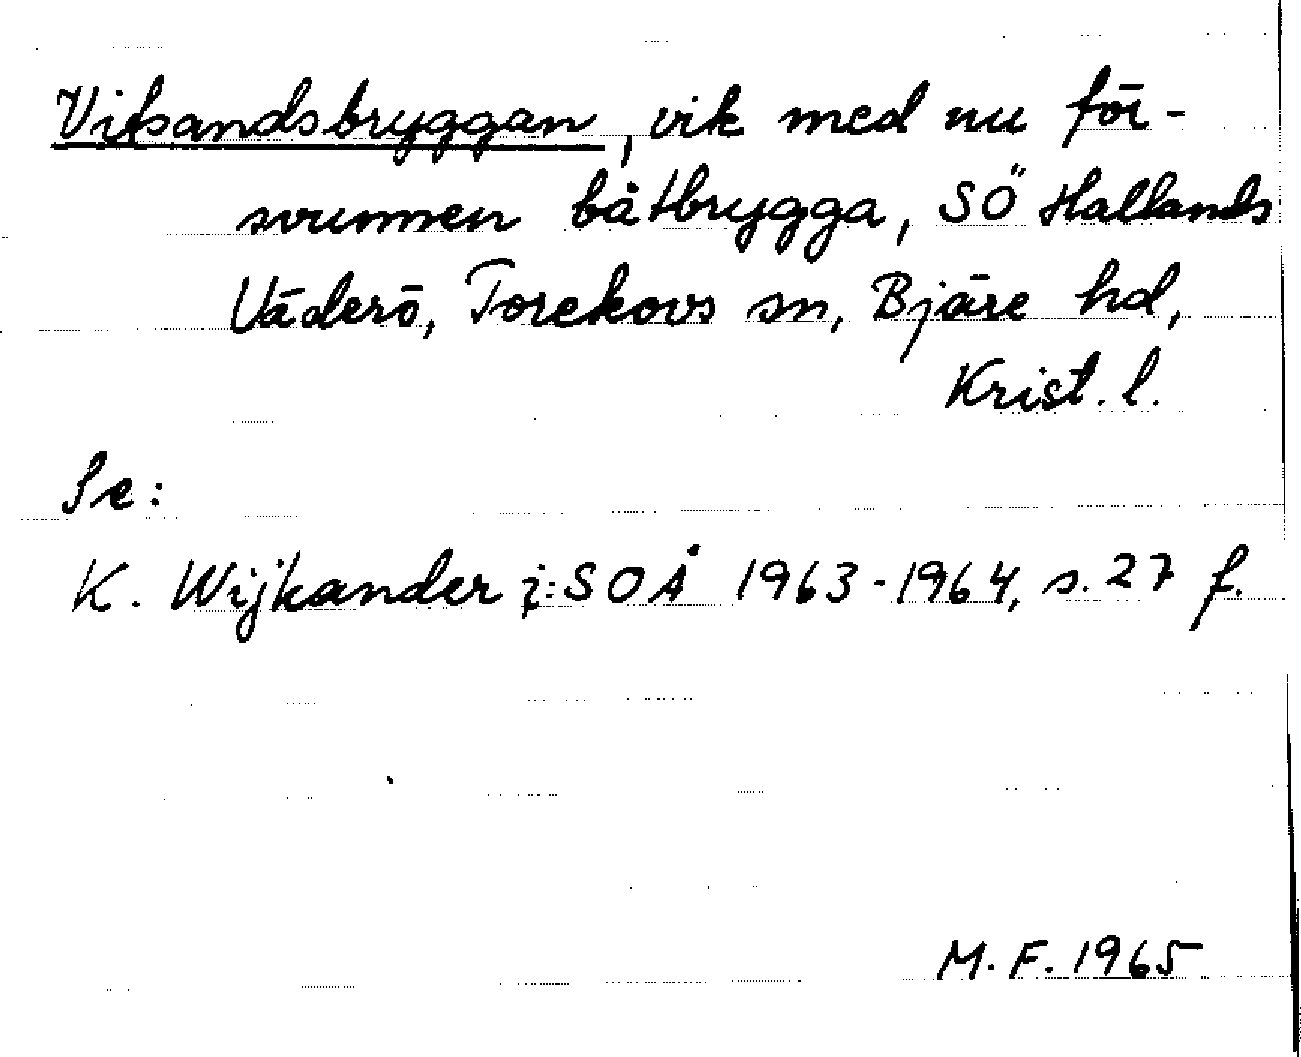 Vitsandsbryggan, vik med nu för-
svunnen båtbrygga, SÖ Hallands
Väderö, Torekovs sn, Bjäre hd,
Krist. l.
Se:
K. Wijkander i: SOÅ 1963-1964, s. 27 f.
M. F. 1965